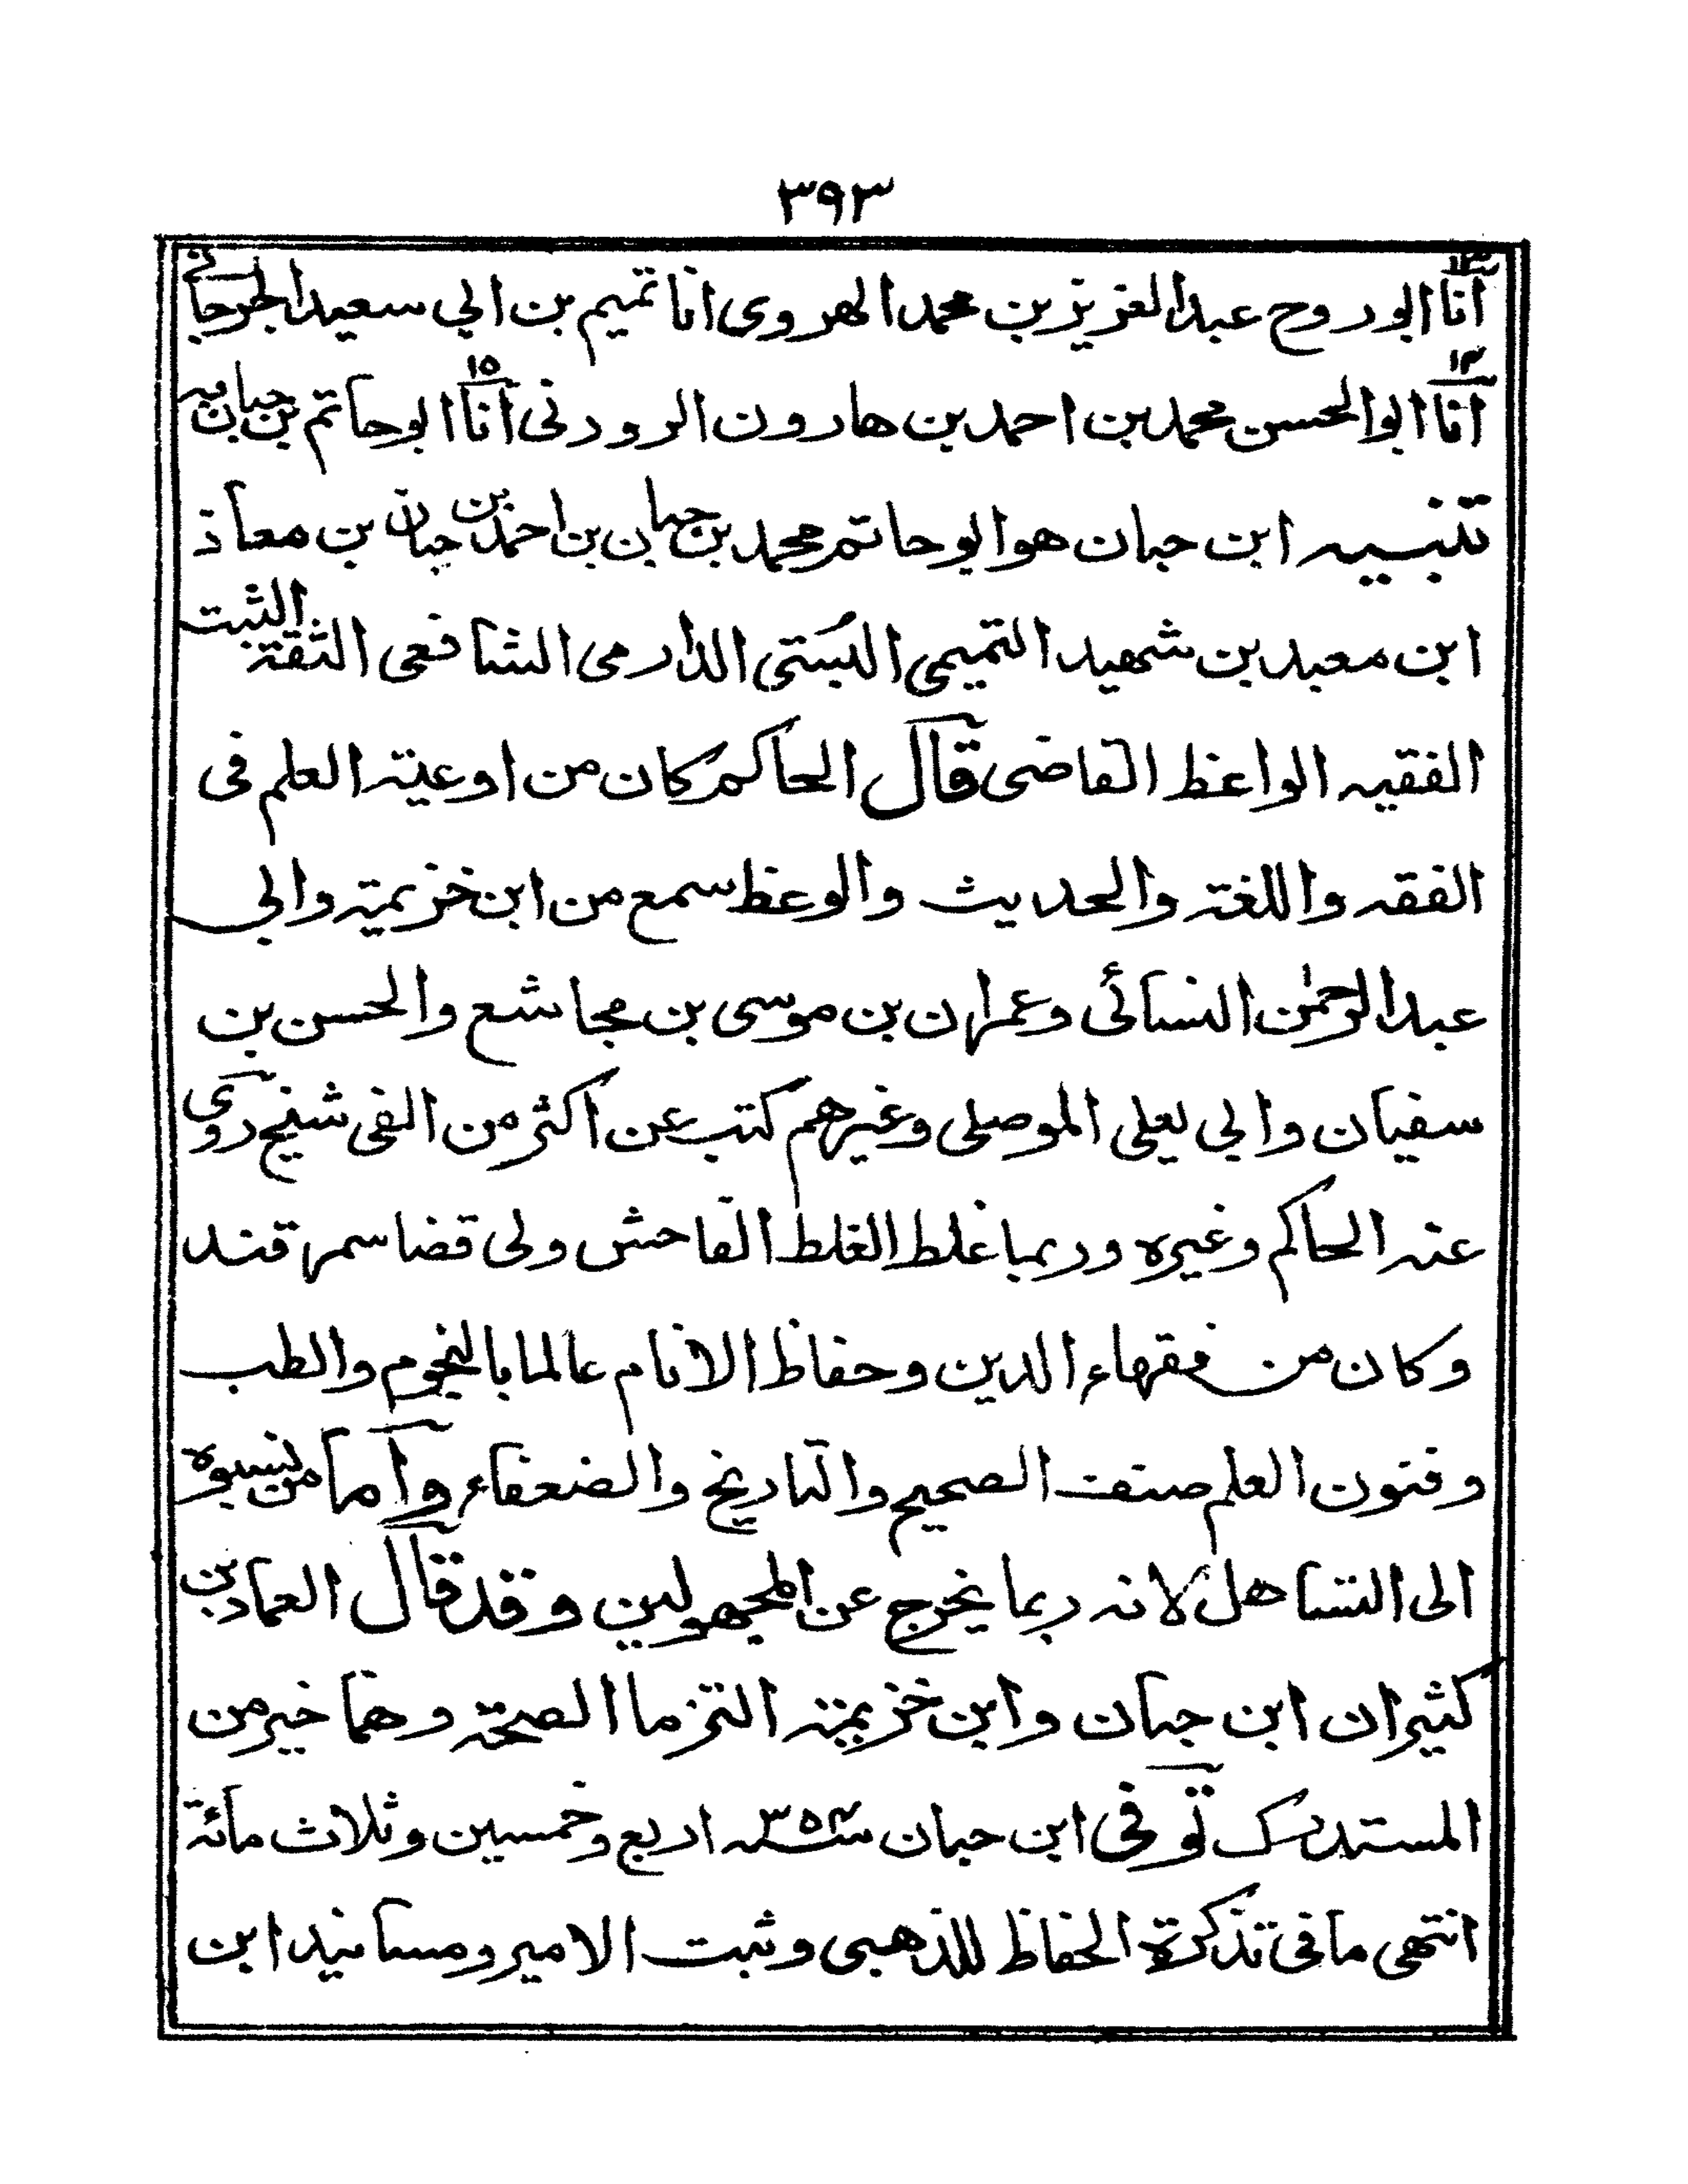 ٣٩٣
انا ابوروح عبدالعزيز بن محمد الهروى انا تميم بن ابي سعيد الجرجاني
انا ابوالحسن محمد بن احمد بن هارون الرودنى ١٥ انا ابوحاتم بن حبان به
تنبيه ابن حبان هوابوحاتم محمد بن حبان بن احمد بن حبان بن معاذ
ابن معبد بن شهيد التميمي البستى الدارمى الشافعى الثقة الثبت
الفقيه الواعظ القاضى قال الحاكم كان من اوعية العلم فى
الفقه واللغة والحديث والوعظ سمع من ابن خزيمة وابي
عبدالرحمٰن النسائى وعمران بن موسى بن مجاشع والحسن بن
سفيان وابي يعلى الموصلى وغيرهم كتب عن اكثر من الفى شيخ روى
عنه الحاكم وغيره وربما غلط الغلط الفاحش ولى قضا سمرقند
وكان من فقهاء الدين وحفاظ الانام عالما بالنجوم والطب
وفنون العلم صنف الصحيح والتاريخ والضعفاء واما من نسبوه
الى التساهل لانه ربما يخرج عن المجهولين وقد قال العماد بن
كثير ان ابن حبان وابن خزيمة التزما الصحة وهما خير من
المستدرك توفى ابن حبان سنة ٣٥٤ اربع وخمسين وثلاث مائة
انتهى ما فى تذكرة الحفاظ للذهبى وثبت الامير ومسانيد ابن